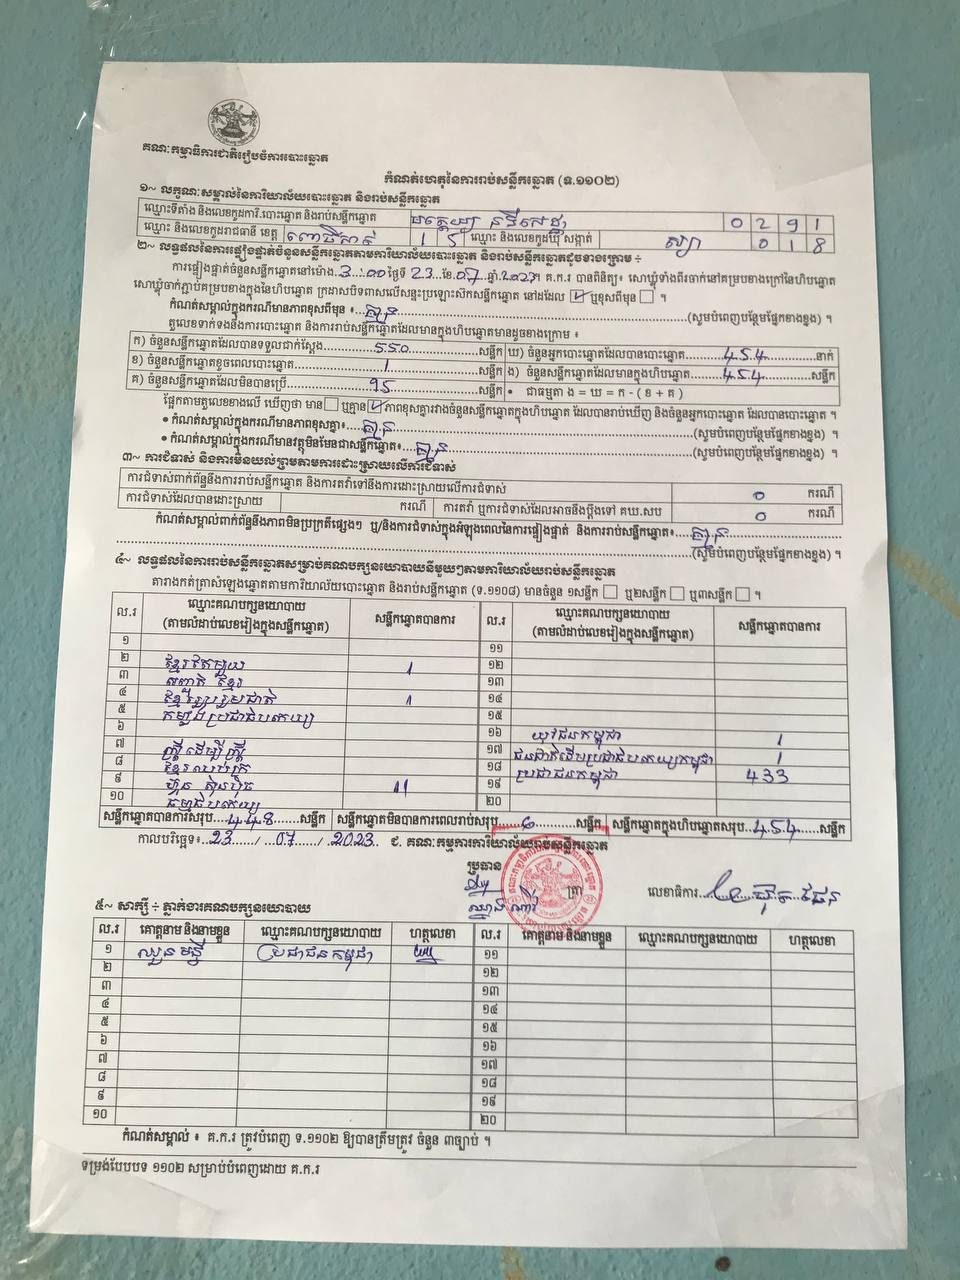 គណៈកម្មាធិការជាតិរៀបចំការបោះឆ្នោត
កំណត់ហេតុនៃការរាប់សន្លឹកឆ្នោត (ទ.១១០២)
១~ លក្ខណៈសម្គាល់នៃការិយាល័យបោះឆ្នោត និងរាប់សន្លឹកឆ្នោត
ឈ្មោះទីតាំង និងលេខកូដការិ.បោះឆ្នោត និងរាប់សន្លឹកឆ្នោត 0 2 9 1
ឈ្មោះ និងលេខកូដរាជធានី ខេត្ត ពោធិ៍សាត់ 1 5 ឈ្មោះ និងលេខកូដឃុំ សង្កាត់ ស្យា 0 1 8
២~ លទ្ធផលនៃការផ្ទៀងផ្ទាត់ចំនួនសន្លឹកឆ្នោតតាមការិយាល័យបោះឆ្នោត និងរាប់សន្លឹកឆ្នោតដូចខាងក្រោម ÷
ការផ្ទៀងផ្ទាត់ចំនួនសន្លឹកឆ្នោតនៅម៉ោង 3:00 ថ្ងៃទី 23 ខែ 07 ឆ្នាំ 2023។ គ.ក.រ បានពិនិត្យ៖ សោឃ្មុំទាំងពីរចាក់នៅគម្របខាងក្រៅនៃហិបឆ្នោត
សោឃ្មុំចាក់ភ្ជាប់គម្របខាងក្នុងនៃហិបឆ្នោត ក្រដាសបិទពាសលើសន្ទុះប្រឡោះស៊កសន្លឹកឆ្នោត នៅដដែល ☑ ឬខុសពីមុន ☐ ។
កំណត់សម្គាល់ក្នុងករណីមានភាពខុសពីមុន ៖ គ្មាន (សូមបំពេញបន្ថែមផ្នែកខាងខ្នង) ។
តួលេខទាក់ទងនឹងការបោះឆ្នោត និងការរាប់សន្លឹកឆ្នោតដែលមានក្នុងហិបឆ្នោតមានដូចខាងក្រោម ៖
ក) ចំនួនសន្លឹកឆ្នោតដែលបានទទួលជាក់ស្តែង 550 សន្លឹក ឃ) ចំនួនអ្នកបោះឆ្នោតដែលបានបោះឆ្នោត 454 នាក់
ខ) ចំនួនសន្លឹកឆ្នោតខូចពេលបោះឆ្នោត 1 សន្លឹក ង) ចំនួនសន្លឹកឆ្នោតដែលមានក្នុងហិបឆ្នោត 454 សន្លឹក
គ) ចំនួនសន្លឹកឆ្នោតដែលមិនបានប្រើ 95 សន្លឹក • ជាធម្មតា ង = ឃ = ក - ( ខ + គ )
ផ្អែកតាមតួលេខខាងលើ ឃើញថា មាន ☐ ឬគ្មាន ☑ ភាពខុសគ្នារវាងចំនួនសន្លឹកឆ្នោតក្នុងហិបឆ្នោត ដែលបានរាប់ឃើញ និងចំនួនអ្នកបោះឆ្នោត ដែលបានបោះឆ្នោត ។
• កំណត់សម្គាល់ក្នុងករណីមានភាពខុសគ្នា៖ គ្មាន (សូមបំពេញបន្ថែមផ្នែកខាងខ្នង) ។
• កំណត់សម្គាល់ក្នុងករណីមានវត្ថុមិនមែនជាសន្លឹកឆ្នោត៖ គ្មាន (សូមបំពេញបន្ថែមផ្នែកខាងខ្នង) ។
៣~ ការជំទាស់ និងការមិនយល់ព្រមតាមការដោះស្រាយលើការជំទាស់
ការជំទាស់ពាក់ព័ន្ធនឹងការរាប់សន្លឹកឆ្នោត និងការតវ៉ាទៅនឹងការដោះស្រាយលើការជំទាស់ 0 ករណី
ការជំទាស់ដែលបានដោះស្រាយ ករណី ការតវ៉ា ឬការជំទាស់ដែលអាចនឹងប្តឹងទៅ គឃ.សប 0 ករណី
កំណត់សម្គាល់ពាក់ព័ន្ធនឹងភាពមិនប្រក្រតីផ្សេងៗ ឬ/និងការជំទាស់ក្នុងអំឡុងពេលនៃការផ្ទៀងផ្ទាត់ និងការរាប់សន្លឹកឆ្នោត៖ គ្មាន
(សូមបំពេញបន្ថែមផ្នែកខាងខ្នង) ។
៤~ លទ្ធផលនៃការរាប់សន្លឹកឆ្នោតសម្រាប់គណបក្សនយោបាយនីមួយៗតាមការិយាល័យរាប់សន្លឹកឆ្នោត
តារាងកត់ត្រាសំឡេងឆ្នោតតាមការិយាល័យបោះឆ្នោត និងរាប់សន្លឹកឆ្នោត (ទ.១១០៨) មានចំនួន ១សន្លឹក ☐ ឬ២សន្លឹក ☐ ឬ៣សន្លឹក ☐ ។
ល.រ ឈ្មោះគណបក្សនយោបាយ (តាមលំដាប់លេខរៀងក្នុងសន្លឹកឆ្នោត) សន្លឹកឆ្នោតបានការ ល.រ ឈ្មោះគណបក្សនយោបាយ (តាមលំដាប់លេខរៀងក្នុងសន្លឹកឆ្នោត) សន្លឹកឆ្នោតបានការ
១ ១១
២ ខ្មែរតែមួយ 1 ១២
៣ សញ្ជាតិ ខ្មែរ ១៣
៤ ខ្មែររួបរួមជាតិ 1 ១៤
៥ កម្លាំងប្រជាធិបតេយ្យ ១៥
៦ ១៦ យុវជនកម្ពុជា 1
៧ ស្ត្រីដើម្បីស្ត្រី ១៧ ជនជាតិដើមប្រជាធិបតេយ្យកម្ពុជា 1
៨ ខ្មែរឈប់ក្រ ១៨ ប្រជាជនកម្ពុជា 433
៩ ហ៊្វុនស៊ិនប៉ិច 11 ១៩
១០ ធម្មាធិបតេយ្យ ២០
សន្លឹកឆ្នោតបានការសរុប 448 សន្លឹក សន្លឹកឆ្នោតមិនបានការពេលរាប់សរុប 6 សន្លឹក សន្លឹកឆ្នោតក្នុងហិបឆ្នោតសរុប 454 សន្លឹក
កាលបរិច្ឆេទ៖ 23 / 07 / 2023 ជ. គណៈកម្មការការិយាល័យរាប់សន្លឹកឆ្នោត
ប្រធាន
ត្រា លេខាធិការ
៥~ សាក្សី ÷ ភ្នាក់ងារគណបក្សនយោបាយ
ល.រ គោត្តនាម និងនាមខ្លួន ឈ្មោះគណបក្សនយោបាយ ហត្ថលេខា ល.រ គោត្តនាម និងនាមខ្លួន ឈ្មោះគណបក្សនយោបាយ ហត្ថលេខា
១ ឈួន មន្នី ប្រជាជនកម្ពុជា ១១
២ ១២
៣ ១៣
៤ ១៤
៥ ១៥
៦ ១៦
៧ ១៧
៨ ១៨
៩ ១៩
១០ ២០
កំណត់សម្គាល់ ៖ គ.ក.រ ត្រូវបំពេញ ទ.១១០២ ឱ្យបានត្រឹមត្រូវ ចំនួន ៣ច្បាប់ ។
ទម្រង់បែបបទ ១១០២ សម្រាប់បំពេញដោយ គ.ក.រ